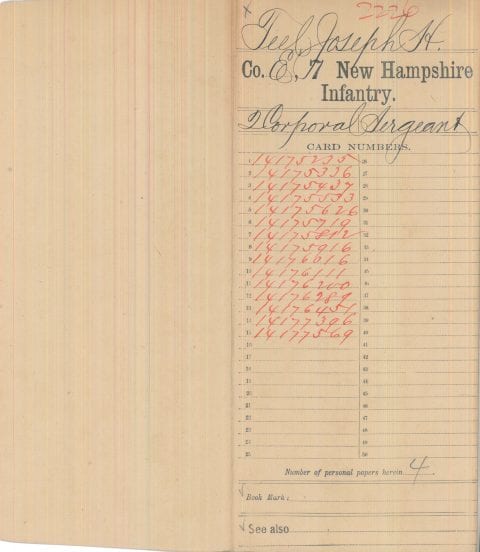 2226
Teel, Joseph H.
Co. E, 7 New Hampshire
Infantry.
Corporal Sergeant
CARD NUMBERS.
1 14175235 26
2 14175336 27
3 14175437 28
4 14175533 29
5 14175626 30
6 14175719 31
7 14175812 32
8 14175916 33
9 14176016 34
10 14176111 35
11 14176200 36
12 14176289 37
13 14176451 38
14 14177396 39
15 14177569 40
16 41
17 42
18 43
19 44
20 45
21 46
22 47
23 48
24 49
25 50
Number of personal papers herein 4
Book Mark:
See also